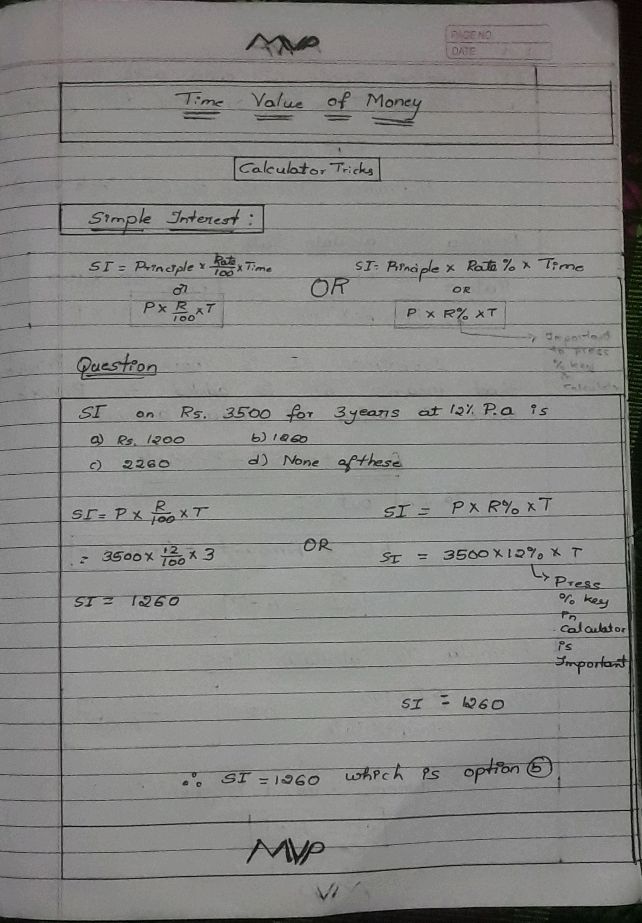 MVP
PAGE NO
DATE
Time Value of Money
Calculator Tricks
Simple Interest :
SI = Principle × Rate/100 × Time
or
P × R/100 × T
OR
SI = Principle × Rate % × Time
OR
P × R% × T
Important
to press
% key
Question
SI on Rs. 3500 for 3 years at 12% P.a is
a) Rs. 1200 b) 1260
c) 2260 d) None of these
SI = P × R/100 × T
= 3500 × 12/100 × 3
SI = 1260
OR
SI = P × R% × T
SI = 3500 × 12% × T
Press
% key
in
calculator
is
Important
SI = 1260
∴ SI = 1260 which is option b
MVP